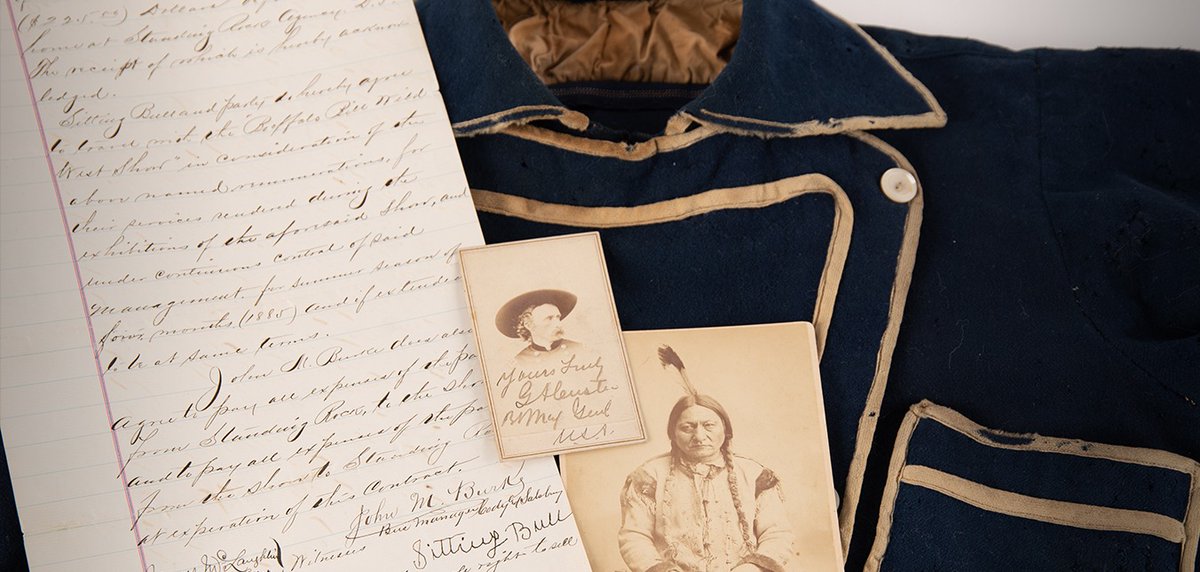 ($225.00) Dollars
home at Standing Rock Agency, D.T.
The receipt of which is hereby acknow
ledged.
Sitting Bull and party do hereby agree
to travel with the "Buffalo Bill Wild
West Show" in consideration of the
above named renumerations, for
their services rendered during the
exhibitions of the aforesaid Show, and
under continuous control of said
management. for summer season of
four months, (1885) and if extended
to be at same terms.
John M. Burke does also
agree to pay all expenses of the pa
from Standing Rock, to the Show
and to pay all expenses of the pa
from the Show to Standing Ro
at experation of this Contract.
John M. Burke
Bus manager Cody & Salsbury
McLaughlin
Witness
Sitting Bull
right to sell
Yours Truly
GACuste
Bt Maj Genl
U.S.A.